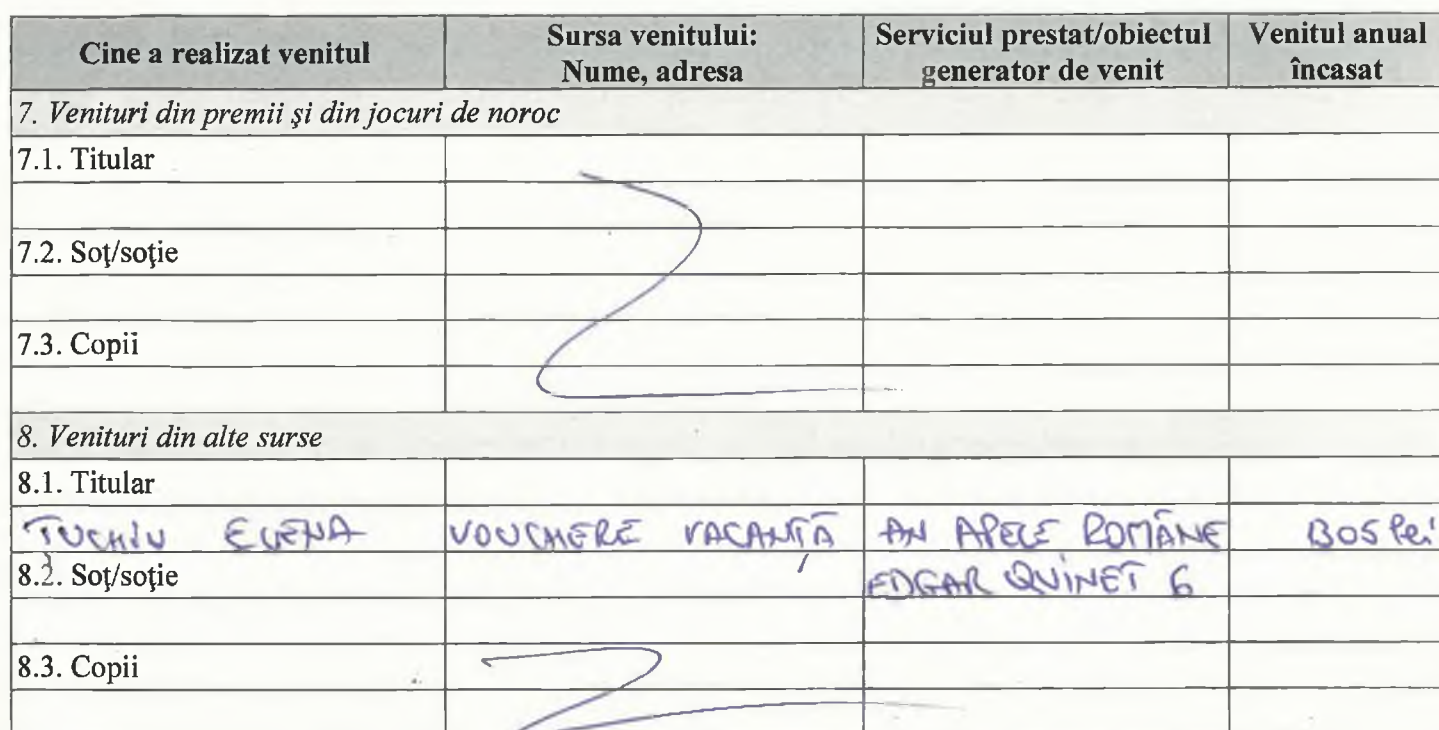 Cine a realizat venitul Sursa venitului: Nume, adresa Serviciul prestat/obiectul generator de venit Venitul anual încasat
7. Venituri din premii şi din jocuri de noroc
7.1. Titular
7.2. Soţ/soţie
7.3. Copii
8. Venituri din alte surse
8.1. Titular
TUCHIU ELENA VOUCHERE VACANȚĂ AN APELE ROMÂNE 1305 lei
8.2. Soţ/soţie EDGAR QUINET 6
8.3. Copii